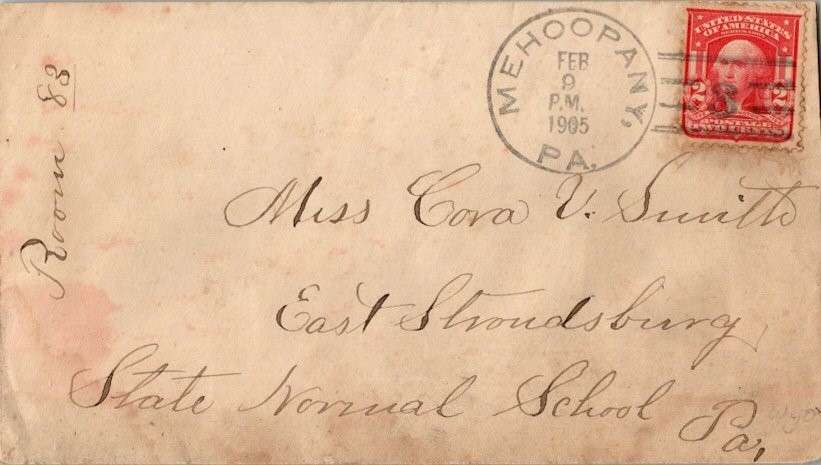 MEHOOPANY, PA.
FEB
9
P.M.
1905
UNITED STATES
OF AMERICA
2 2
POSTAGE
TWO CENTS
Room 83
Miss Cora V. Smith
East Stroudsburg,
State Normal School
Pa,